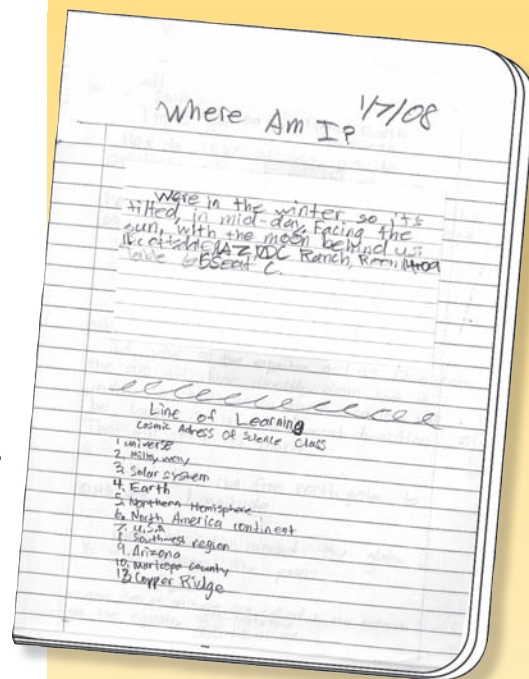 Where Am I? 1/7/08
Were in the winter so it's
tilted, in mid-day. Facing the
sun, with the moon behind us
AZ, DC Ranch, Room
Table Seat C.
Line of Learning
Cosmic Adress Of Science Class
1. universe
2. Milky way
3. Solar system
4. Earth
5. Northern Hemisphere
6. North America continent
7. U.S.A
8. Southwest region
9. Arizona
10. Maricopa county
13. Copper Ridge